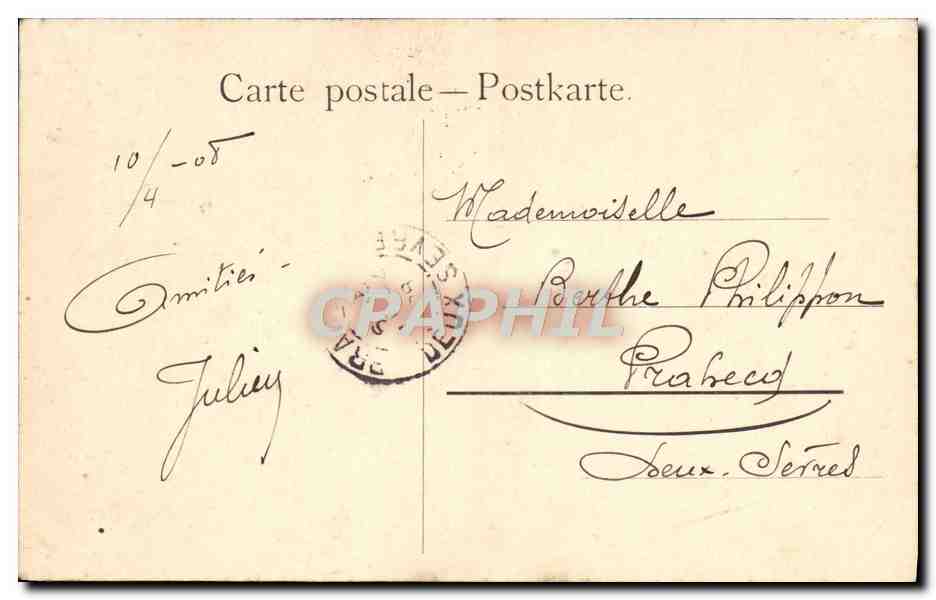 Carte postale — Postkarte.
10/4 - 08
Amitiés -
Julien
Mademoiselle
Berthe Philippon
Prahecq
Deux-Sèvres
DEUX SEVRE
PRA
CPAPHIL